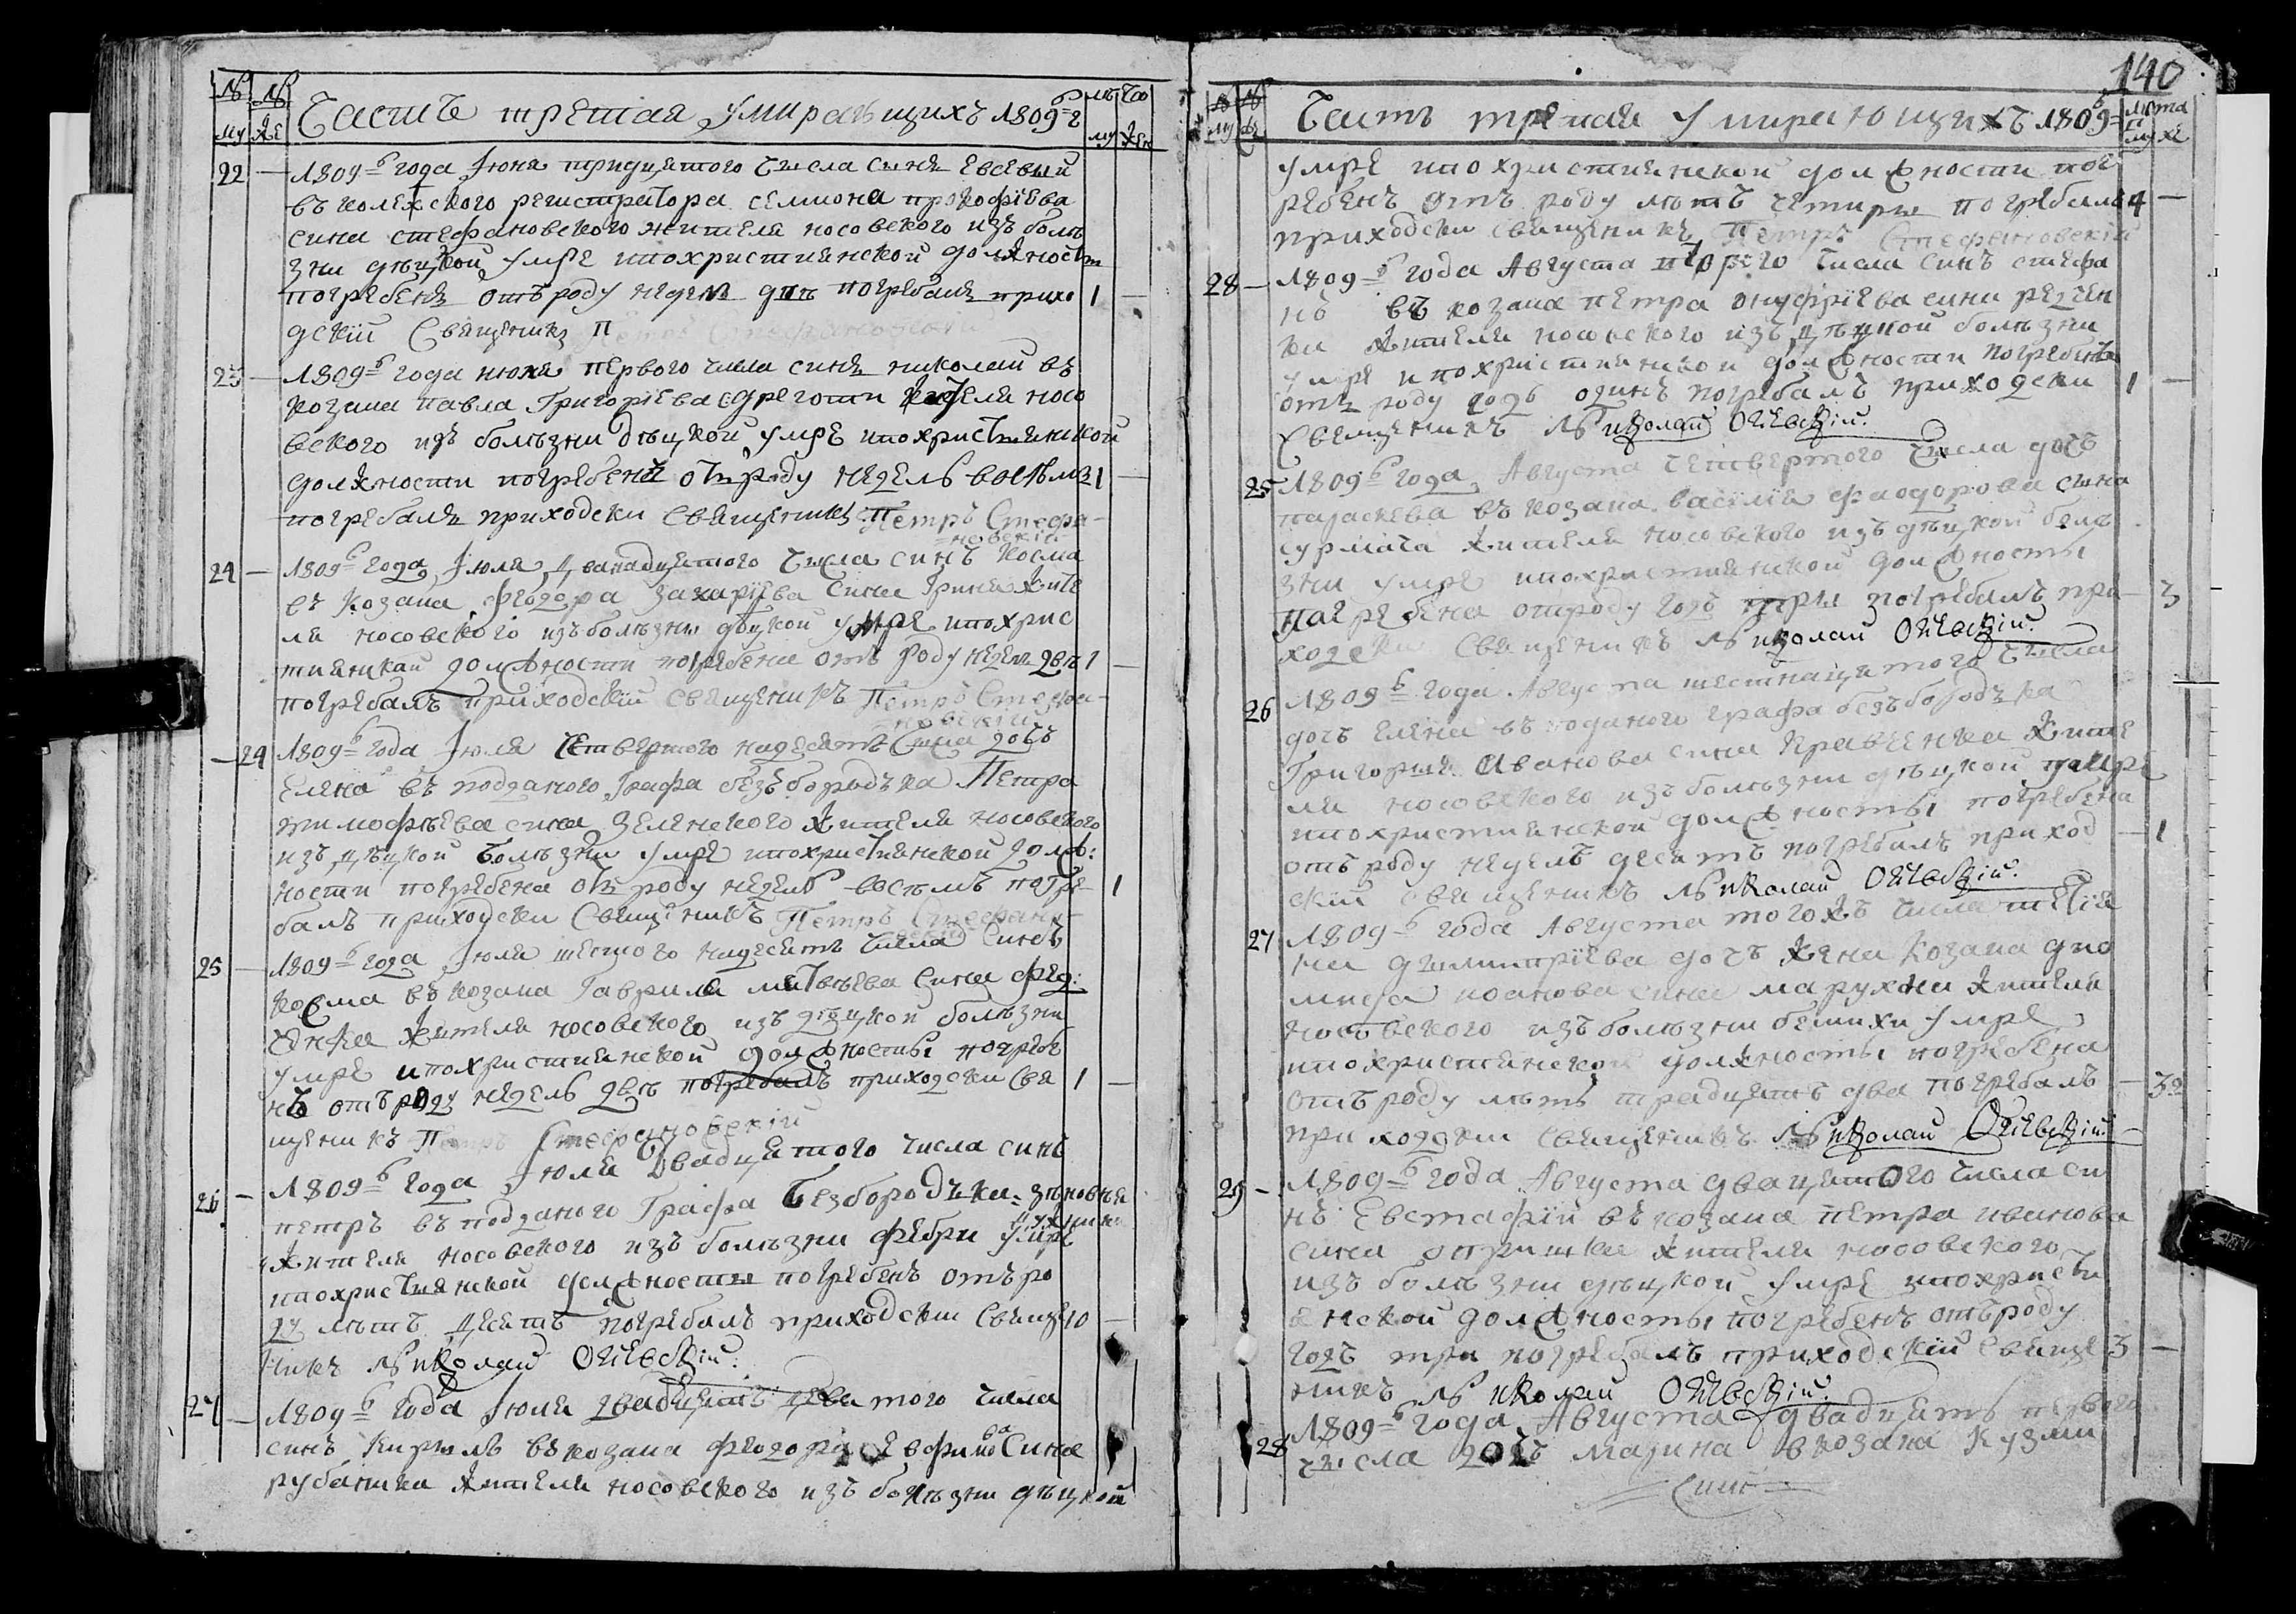 № № Часть третая умирающихъ 1809г лѣ та
му же му жен
22 — 1809го года Июня тридцатого числа сынъ Евсевый
въ колежского регистратора семиона прокофіева
сина стефановского жителя носовского изъ болѣ
зни дѣцкой умре ипохристиянской должности
погребенъ отъ роду недели двѣ погребалъ прихо 1 —
дскій священикъ Петръ Стефановскій
23 — 1809го года июня первого числа синъ николай въ
козака павла Григоріева жителя носо
вского изъ болѣзни дѣцкой умре ипохристиянской
должности погребенъ отъ роду недель восѣмъ 1 —
погребалъ приходски священикъ Петръ Стефа-
новскій
24 — 1809го года Июля дванадцатого числа синъ Косма
въ Козака Феодора захаріева сина Гриня жите
ля носовского изъ болѣзни дѣцкой умре ипохрис
тиянской должности погребенъ отъ роду недель двѣ 1 —
погребалъ приходскій священикъ Петръ Стефа-
новскій
— 24 1809го года Июля Четвертого надесять числа дочъ
Елена въ подданого Графа безъбородька Петра
тимофѣева сина зеленского жителя носовского
изъ дѣцкой болѣзни умре ипохристиянской долж:
ности погребена отъ роду недель восѣмъ погре- 1
балъ приходски Священикъ Петръ Стефано-
вскій
25 — 1809го года Июля шестого надесять числа Синъ
Косма въ козака Гаврила матвѣева Сина Фед:
ченка жителя носовского изъ дѣцкой болѣзни
умре ипохристиянской должносты погребе
нъ отъ роду недель двѣ погребалъ приходски Свя 1 —
щеникъ Петръ Стефановскій
26 — 1809го года Июля двадцатого числа синъ
петръ въ подданого Графа Безбородька зѣновья
жителя носовского изъ болѣзни фебри умре
ипохристиянской должносты погребенъ отъ ро
ду лѣтъ десять погребалъ приходски Свяще 10 —
никъ Николай Огіевскій.
27 — 1809го года Июля двадцять девятого числа
синъ Кирилъ въ козака феодора Евфимова Сина
рубаника жителя носовского изъ болѣзни дѣцкой
140
№ № Часть третая умирающихъ 1809го лѣта
му же му же
умре ипохристиянской должности пог
ребенъ отъ роду лѣтъ четиры погребалъ 4 —
приходски священикъ Петръ Стефановскій
28 — 1809го года Августа второго числа синъ стефа
нъ въ козака петра онуфріева сина
жителя носовского изъ дѣцкой болѣзни
умре ипохристиянской должности погребенъ
отъ роду годъ одинъ погребалъ приходски 1 —
Священикъ Николай Огіевскій.
25 1809го года Августа Четвертого числа дочъ
параскева въ козака василія феодорова сина
сурмача жителя носовского изъ дѣцкой болѣ
зни умре ипохристиянской должносты
погребена отроду годъ три погребалъ при — 3
ходски священикъ Николай Огіевскій.
26 1809го года Августа шестнацатого числа
дочъ елена въ поданого графа безъбородька
Григория Иванова сина Кравченка жите
ля носовского изъ болѣзни дѣцкой умре
ипохристиянской должносты погребена
отъ роду недель десять погребалъ приход — 1
скій священикъ Николай Огіевскій.
27 1809го года Августа тогожъ числа
на димитріева дочъ жена козака дио
мида иоанова сина марухни жителя
носовского изъ болѣзни умре
ипохристиянской должносты погребена
отъ роду лѣтъ традцать два погребалъ — 32
приходски священикъ Николай Огіевскій
29 — 1809го года Августа двацатого числа си
нъ Евстафій въ козака петра иванова
сина опришка жителя носовского
изъ болѣзни дѣцкой умре ипохристи
янской должносты погребенъ отъ роду
годъ три погребалъ приходскій Свяще 3 —
никъ Николай Огіевскій.
28 1809го года Августа двадцять первого
числа дочъ марина в козака Кузми
сина